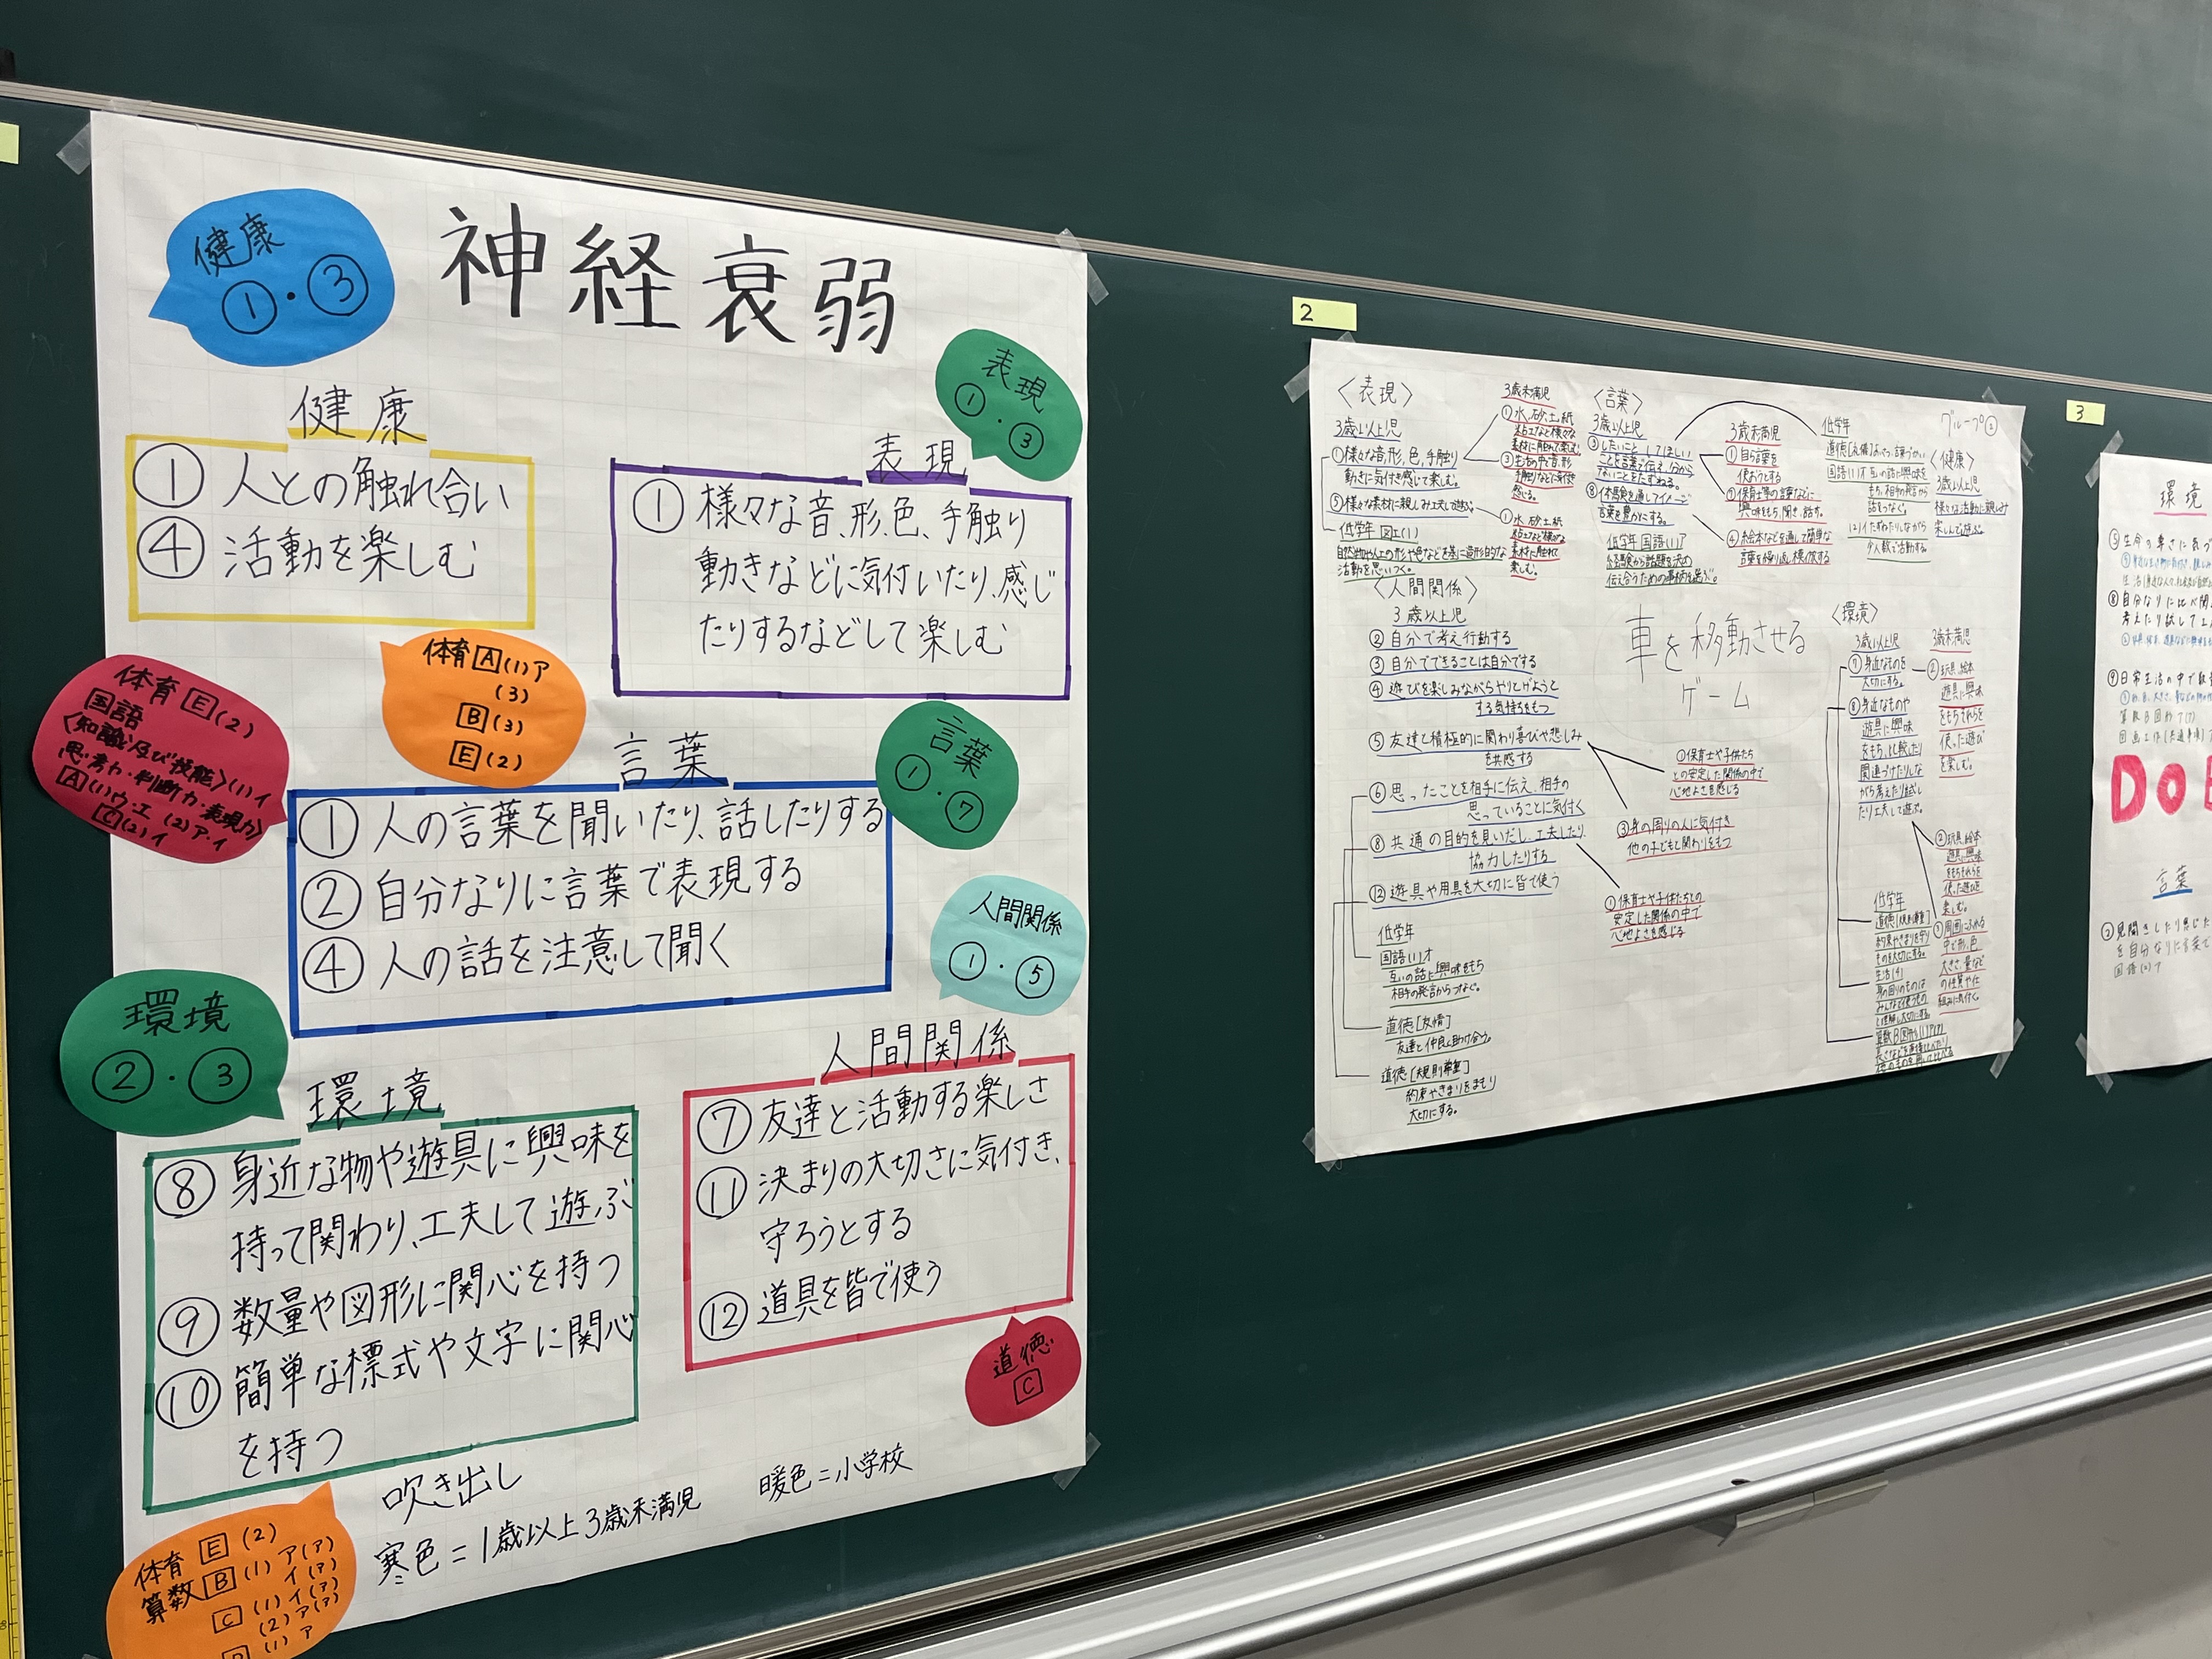 神経衰弱
健康
①・③
表現
①・③
健康
① 人との触れ合い
④ 活動を楽しむ
表現
① 様々な音、形、色、手触り
動きなどに気付いたり、感じ
たりするなどして楽しむ
体育 A (1)ア
(3)
B (3)
E (2)
体育 E (2)
国語
〈知識及び技能〉(1)イ
思・考力・判断力・表現力〉
A (1)ウ・エ (2)ア・イ
C (2)イ
言葉
①・⑦
言葉
① 人の言葉を聞いたり、話したりする
② 自分なりに言葉で表現する
④ 人の話を注意して聞く
人間関係
①・⑤
環境
②・③
環境
⑧ 身近な物や遊具に興味を
持って関わり、工夫して遊ぶ
⑨ 数量や図形に関心を持つ
⑩ 簡単な標式や文字に関心
を持つ
人間関係
⑦ 友達と活動する楽しさ
⑪ 決まりの大切さに気付き、
守ろうとする
⑫ 道具を皆で使う
道徳
C
吹き出し
寒色=1歳以上3歳未満児 暖色=小学校
体育 E (2)
算数 B (1) ア(ア)
イ(ア)
C (1)イ(ア)
(2)ア(ア)
(1)ア
2
〈表現〉
3歳以上児
①様々な音、形、色、手触り
動きに気付き感じて楽しむ。
⑤様々な素材に親しみ工夫して遊ぶ。
低学年 図工(1)
活動を思いつく。
3歳未満児
①水、砂、土、紙
粘土など様々な
素材に触れて楽しむ。
③生活の中で音、形
手触りなどに気付き
感じる。
①水、砂、土、紙
粘土など様々な
素材に触れて
楽しむ。
〈言葉〉
3歳以上児
③したいこと、してほしい
ことを言葉で伝え、分から
ないことをたずねる。
⑧体験を通してイメージ
言葉を豊かにする。
低学年 国語(1)ア
伝え合うための事柄を選ぶ。
3歳未満児
①自ら言葉を
使おうとする
⑦保育士等の言葉などに
興味をもち、聞き、話す。
④絵本などを通して簡単な
言葉を繰り返し模倣する
低学年
国語(1)オ 互いの話に興味を
もち、相手の発言から
話をつなぐ。
少人数で活動する。
グループ②
〈健康〉
3歳以上児
様々な活動に親しみ
楽しんで遊ぶ。
車を移動させる
ゲーム
〈人間関係〉
3歳以上児
②自分で考え行動する
③自分でできることは自分でする
④遊びを楽しみながらやりとげようと
する気持ちをもつ
⑤友達と積極的に関わり喜びや悲しみ
を共感する
⑥思ったことを相手に伝え、相手の
思っていることに気付く
⑧共通の目的を見いだし、工夫したり、
協力したりする
⑫遊具や用具を大切に皆で使う
①保育士や子供たち
との安定した関係の中で
心地よさを感じる
③身の周りの人に気付き
他の子どもと関わりをもつ
①保育士や子供たちとの
安定した関係の中で
心地よさを感じる
低学年
国語(1)オ
互いの話に興味をもち
相手の発言からつなぐ。
道徳[友情]
友達と仲良く助け合う。
道徳[規則尊重]
約束やきまりをまもり
大切にする。
〈環境〉
3歳以上児
⑦身近なものを
大切にする。
⑧身近なものや
遊具に興味
をもち、比較したり
関連づけたりしな
がら考えたり試し
たり工夫して遊ぶ。
3歳未満児
②玩具、絵本
遊具に興味
をもちそれらを
使った遊び
を楽しむ。
②玩具、絵本
遊具に興味
をもちそれらを
使った遊びを
楽しむ。
低学年
道徳[規則尊重]
約束やきまりを守り
ものを大切にする。
生活(4)
身の回りのものは
みんなで使うもの
3
環境
⑤生命の尊さに気づ
⑧自分なりに比べ関
考えたり試して工
⑨日常生活の中で数
言葉
を自分なりに言葉で